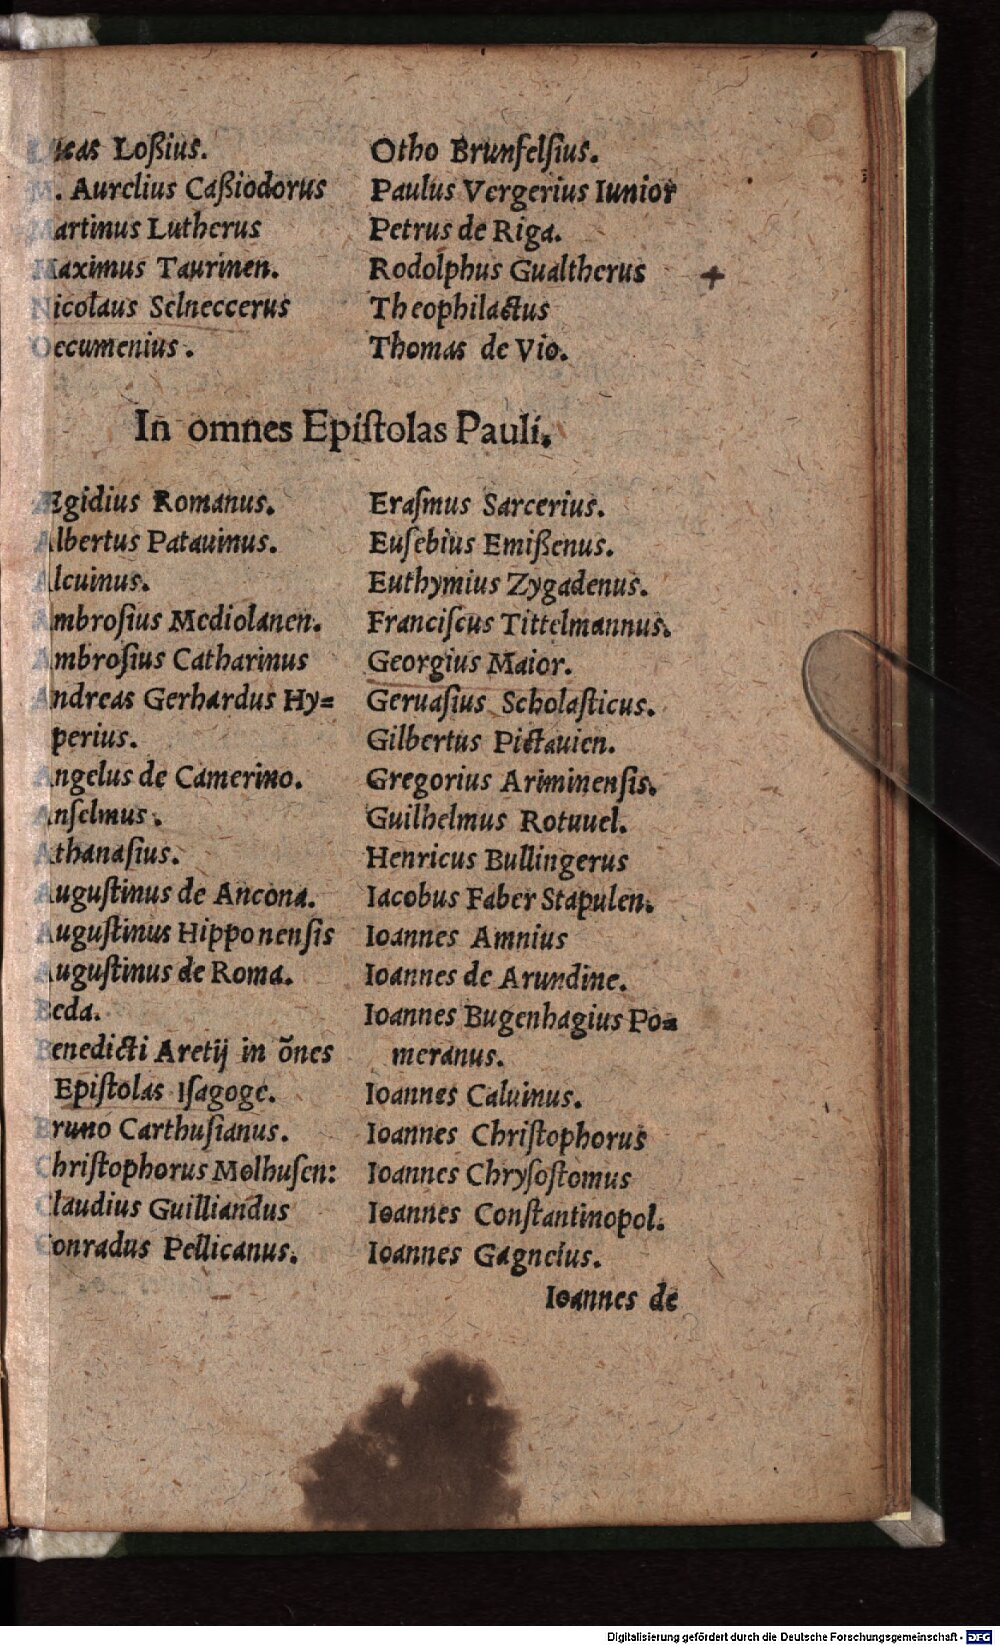 Lucas Loßius.
M. Aurelius Caßiodorus
Martinus Lutherus
Maximus Taurinen.
Nicolaus Selneccerus
Oecumenius.
Otho Brunfelſius.
Paulus Vergerius Iunior
Petrus de Riga.
Rodolphus Gualtherus +
Theophilactus
Thomas de Vio.
In omnes Epiſtolas Pauli.
Ægidius Romanus.
Albertus Patauinus.
Alcuinus.
Ambroſius Mediolanen.
Ambroſius Catharinus
Andreas Gerhardus Hy=
perius.
Angelus de Camerino.
Anſelmus.
Athanaſius.
Auguſtinus de Ancona.
Auguſtinus Hipponenſis
Auguſtinus de Roma.
Beda.
Benedicti Aretij in õnes
Epiſtolas Iſagoge.
Bruno Carthuſianus.
Chriſtophorus Molhuſen:
Claudius Guilliandus
Conradus Pellicanus.
Eraſmus Sarcerius.
Euſebius Emißenus.
Euthymius Zygadenus.
Franciſcus Tittelmannus.
Georgius Maior.
Geruaſius Scholaſticus.
Gilbertus Pictauien.
Gregorius Ariminenſis.
Guilhelmus Rotuuel.
Henricus Bullingerus
Iacobus Faber Stapulen.
Ioannes Amnius
Ioannes de Arundine.
Ioannes Bugenhagius Po=
meranus.
Ioannes Caluinus.
Ioannes Chriſtophorus
Ioannes Chryſoſtomus
Ioannes Conſtantinopol.
Ioannes Gagneius.
Ioannes de
Digitalisierung gefördert durch die Deutsche Forschungsgemeinschaft - DFG